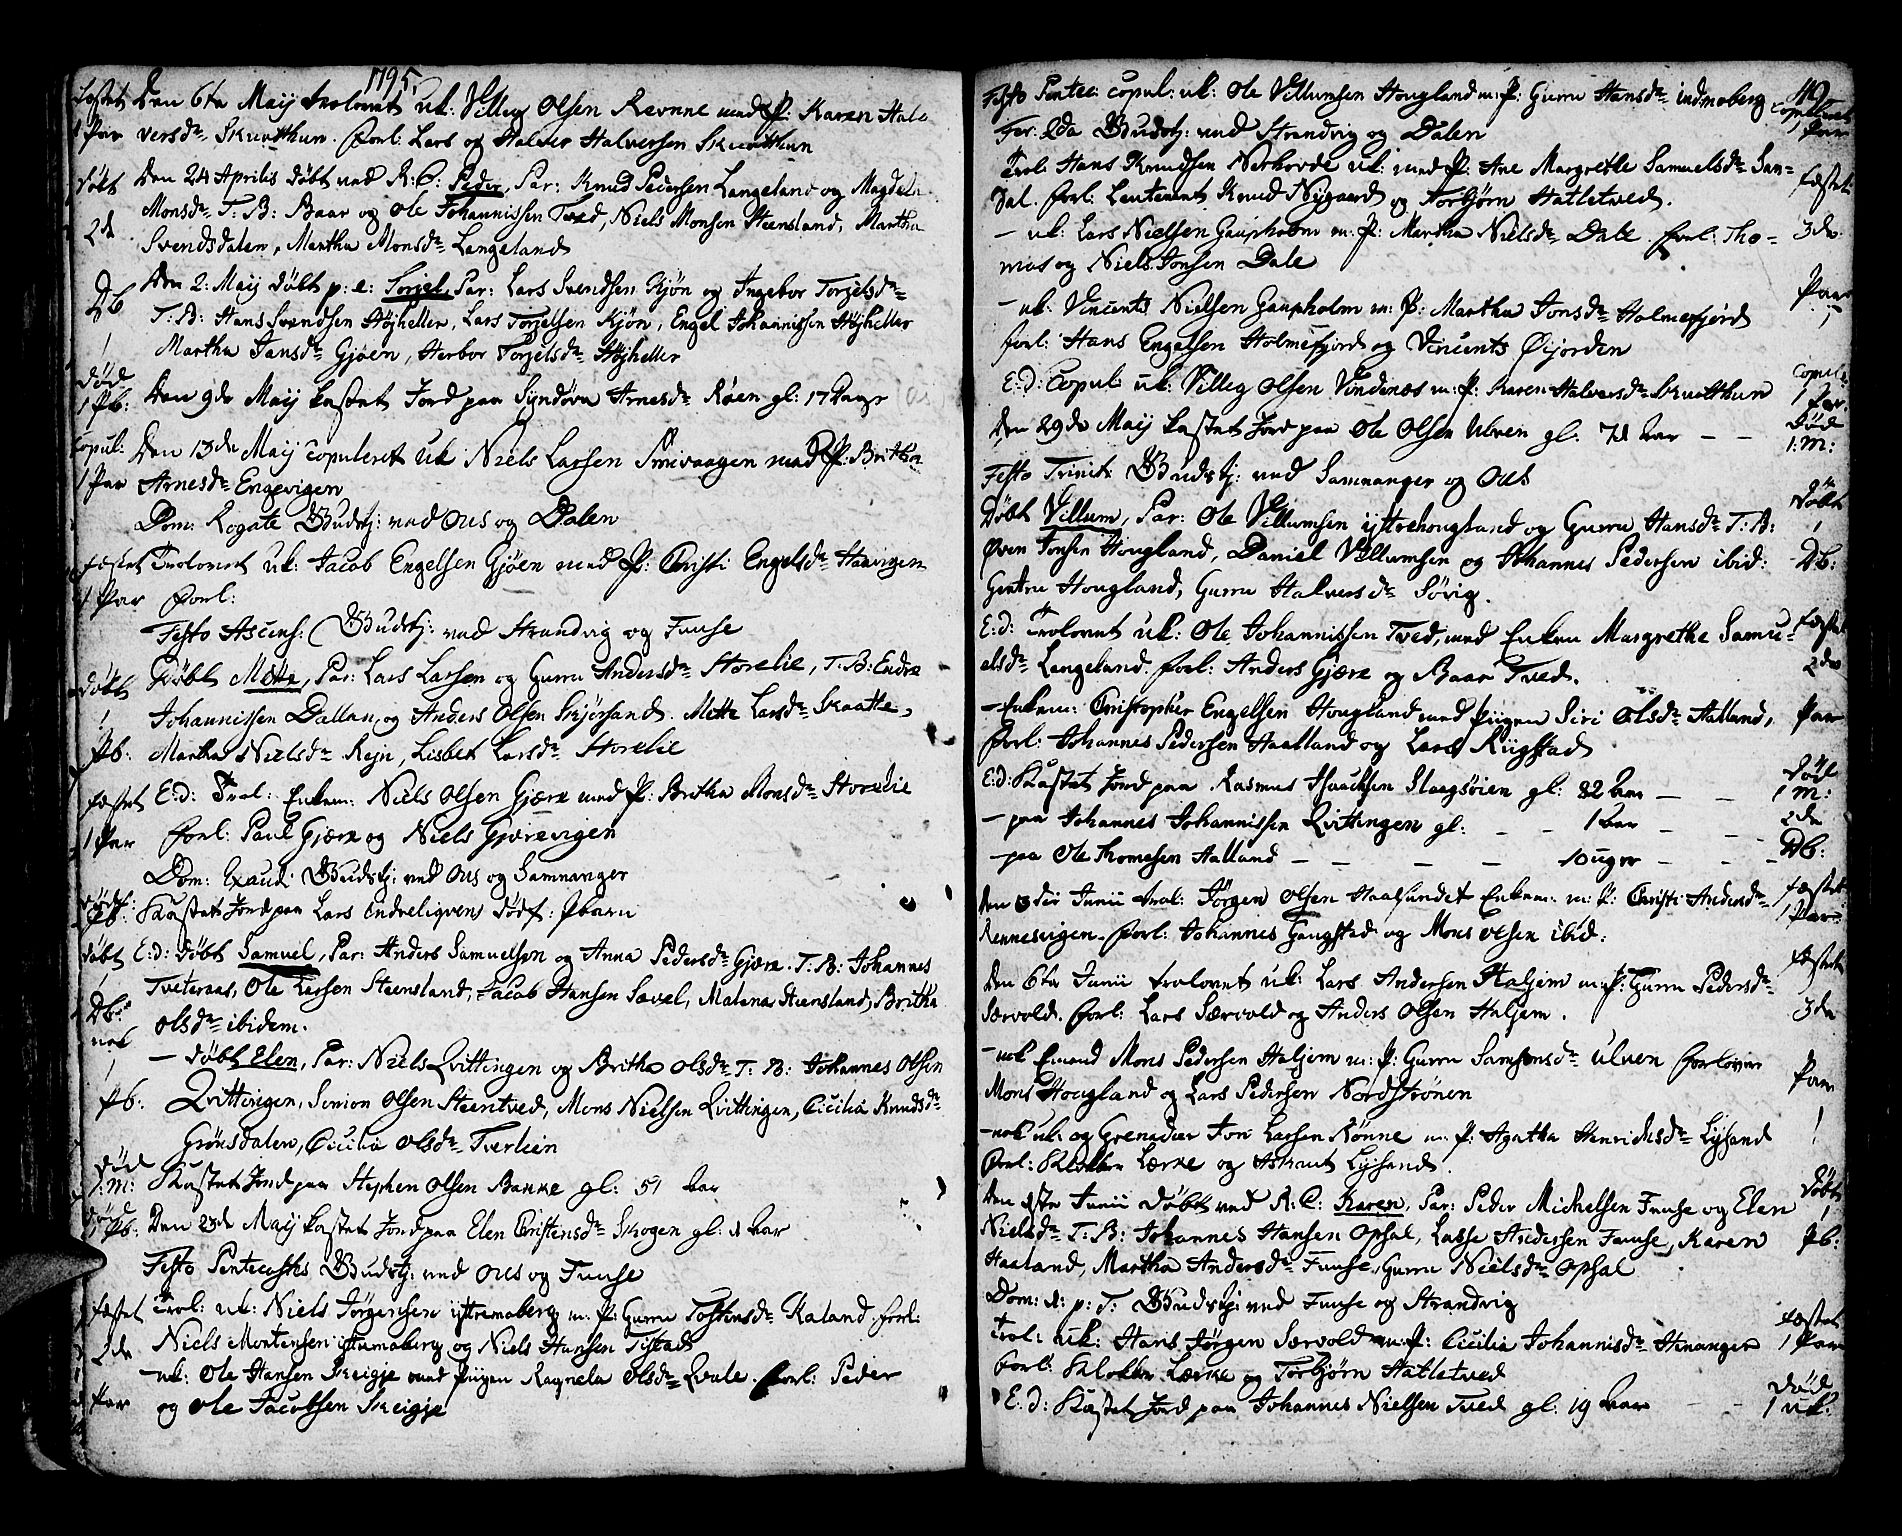 1795.
fæstet Den 6te Maij trolovet uk: Villeg Olsen Revne med P: Karen Hal-
1 Par versdr Skuthun. forl: Lars og Halver Halversen Skuthun
døbt Den 24 Aprilis døbt ved R. C: Peder, Par: Knud Pedersen Langeland og Magdela
2de Monsdr T: B: Baar og Ole Johannissen Tved, Niels Monsen Steensland, Martha
Svendsdalen, Martha Monsdr Langeland
Db Den 2: Maij døbt p: e: Torjel, Par: Lars Svendsen Kjøn og Ingebor Torjelsdr
1 T: B: Hans Svendsen Højheller, Lars Torjelsen Kjøn, Engel Johannissen Højheller
Martha Jansdr Gjøen, Herbor Torjelsdr Højheller
død 1 Pb: Den 9de Maij kastet Jord paa Syndøva Arnesdr Røen gl: 17 Dage
Copul: Den 13de Maij copuleret uk Niels Larsen Smivaagen med P: Britha
1 Par Arnesdr Engevigen
Dom: Rogate Gudstj: ved Ous og Dalen
fæstet Trolovet uk: Jacob Engelsen Gjøen med P: Christi Engelsdr Haavigen
1 Par forl:
Festo Ascens: Gudstj: ved Strandvig og Fuuse
døbt Døbt Mette, Par: Lars Larsen og Gurru Andersdr Storelie, T: B: Endre
1 Johannissen Dallan, og Anders Olsen Skjørsand. Mette Larsdr Skaatte,
Pb: Martha Nielsdr Rejn, Lisbet Larsdr Storelie
fæstet E: d: Trol: Enkem: Niels Olsen Gjære med P: Britha Monsdr Storelie
1 Par forl: Paul Gjære og Niels Gjerevigen
Dom: Exaudi Gudstj: ved Ous og Samnanger
dødf: Pb: Kastet Jord paa Lars Endreliqvens dødf: Pbarn
døbt E: d: døbt Samuel, Par: Anders Samuelsen og Anna Pedersdr Gjære. T: B: Johannes
1 Tveteraas, Ole Larsen Steensland, Jacob Hansen Sævel, Malena Steensland, Britha
Db: Olsdr ibidem.
nok – døbt Elen, Par: Niels Qvittingen og Britha Olsdr T: B: Johannes Olsen
1 Pb: Qvittingen, Simon Olsen Steentved, Mons Nielsen Qvittingen, Cicilia Knudsdr
Grønsdalen, Cicilia Olsdr Tverlien
død 1: M: Kastet Jord paa Stephen Olsen Bakke gl: 51 Aar
død 1 Pb: Den 23de Maij kastet Jord paa Elen Christensdr Skogen gl: 1 Aar
Festo Pentecostes Gudstj: ved Ous og Fuuse
fæstet Trol: uk: Niels Jørgensen yttremaberg m: P: Gurru Tostensdr Raland, forl:
2de Niels Mortensen ittremaberg og Niels Hansen Tistad
– uk: Ole Hansen Skeigje med Piigen Ragnela Olsdr Qvale. forl: Peder
Par og Ole Jacobsen Skeigje
49
Festo Pentec: copul: uk: Ole Villumsen Hougland m: P: Gurru Hansdr indmaberg copuleret
Fer: 2da Gudstj: ved Strandvig og Dalen 1 Par
Trol: Hans Knudsen Nerhovde uk: med P: Ane Margrethe Samuelsdr San- fæstet
dal. forl: Leutenant Knud Nygaard og Torbjørn Hatletved.
– uk: Lars Nielsen Gaupholm m: P: Martha Nielsdr Dale. forl: Tho- 3de
mas og Niels Jonsen Dale
– uk: Vincents Nielsen Gaupholm m: P: Martha Jonsdr Holmefjord Par
forl: Hans Engelsen Holmefjord og Vincents Øijorden
E: d: Copul: uk: Villeg Olsen Vindenæs m: P: Karen Halversdr Skuthun copule: 1 Par.
Den 29de Maij kastet Jord paa Ole Olsen Ulven gl: 71 Aar – – Død 1: M:
Festo Trinit: Gudstj: ved Samnanger og Ous
Døbt Villum, Par: Ole Villumsen yttrehougland og Gurru Hansdr T: B: døbt 1
Øven Jonsen Hougland, Daniel Villumsen og Johannes Pedersen ibid: Db:
Gertru Hougland, Gurru Halversdr Sørig.
E: d: Trolovet uk: Ole Johannissen Tved, med Enken Margrethe Samu- fæstet
elsdr Langeland. forl: Anders Gjære og Baar Tved. 2de
– Enkem: Christopher Engelsen Hougland med Piigen Siri Olsdr Hatland, Par
forl: Johannes Pedersen Haatland og Lars Riigstad
E: d: Kastet Jord paa Rasmus Isachsen Slaagsøien gl: 82 Aar – – død 1 M:
– paa Johannes Johannissen Qvittingen gl: – – 1 Aar – 2de
– paa Ole Thomesen Hatland – – – – 10 uger – – Db:
Den 3die Junii trol: Jørgen Olsen Haalsundet Enkem: m: P: Christi Andersdr fæstet
Rennesvigen. forl: Johannes Gangstad og Mons Olsen ibid: 1 Par
Den 6te Junii trolovet uk: Lars Andersen Haljem m: P: Gurru Pedersdr fæstet
Særvold. forl: Lars Særvold og Anders Olsen Haljem. 3de
– nok Enemd Mons Pedersen Haljem m: P: Gurru Samsonsdr Ulven forlover
Mons Hougland og Lars Pedersen Nordstrønen Par
– nok uk: og Grenadier Jon Larsen Rønne m: P: Agatha Henrichsdr Lysand 1
forl: Klokker Lærke og Askaut Lysand.
Den 1ste Junii døbt ved R. C: Karen, Par: Peder Michelsen Fuuse og Elen døbt 1
Nielsdr T: B: Johannes Hansen Opsal, Lasse Andersen Fuuse, Karen Pb:
Haaland, Martha Andersdr Fuuse, Gurru Nielsdr Opsal
Dom: 1: p: T: Gudstj: ved Fuuse og Strandvig
Trol: uk: Hans Jørgen Særvold m: P: Cicilia Johannisdr Henanger fæstet 1 Par
forl: Klokker Lærke og Torbjørn Hatletved
E: d: Kastet Jord paa Johannes Nielsen Tved gl: 19 Aar – – død 1 uk: